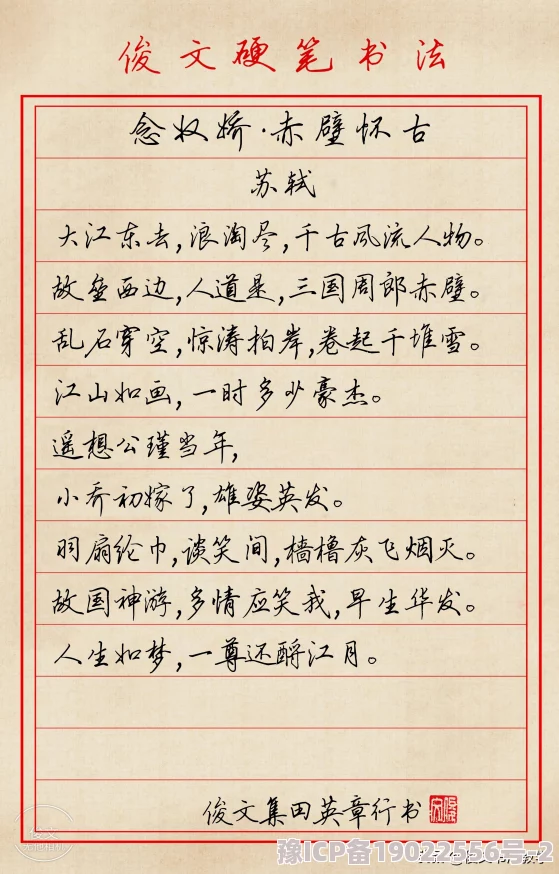 俊文硬笔书法
念奴娇·赤壁怀古
苏轼
大江东去,浪淘尽,千古风流人物。
故垒西边,人道是,三国周郎赤壁。
乱石穿空,惊涛拍岸,卷起千堆雪。
江山如画,一时多少豪杰。
遥想公瑾当年,
小乔初嫁了,雄姿英发。
羽扇纶巾,谈笑间,樯橹灰飞烟灭。
故国神游,多情应笑我,早生华发。
人生如梦,一尊还酹江月。
俊文集田英章行书
俊文
豫ICP备19022556号-2